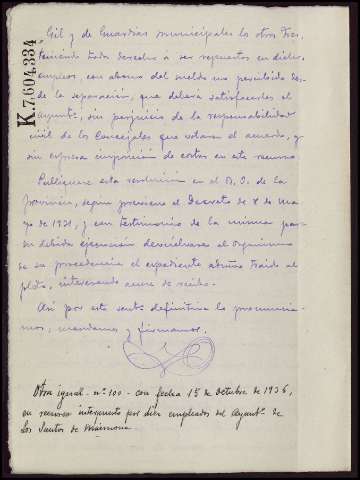 K.7.604.334
Gil y de Guardias municipales los otros tres
teniendo todos derecho á ser repuestos en dichos
empleos, con abono del sueldo no percibido des-
de la separación, que deberá satisfacerles el
Ayuntº, sin perjuicio de la responsabilidad
civil de los Concejales que votaron el acuerdo, y
sin expresa imposición de costas en este recurso
Publíquese esta resolución en el B. O. de la
provincia, según previene el Decreto de 8 de ma-
yo de 1931, y con testimonio de la misma para
su debida ejecución devuélvase al organismo
de su procedencia el expediente admtvo traído al
pleito, interesando acuse de recibo.
Así por esta sentª definitiva lo pronuncia-
mos, mandamos y firmamos.
Otra igual - nº 100 - con fecha 15 de octubre de 1936,
en recurso interpuesto por diez empleados del Ayuntº de
Los Santos de Maimona.